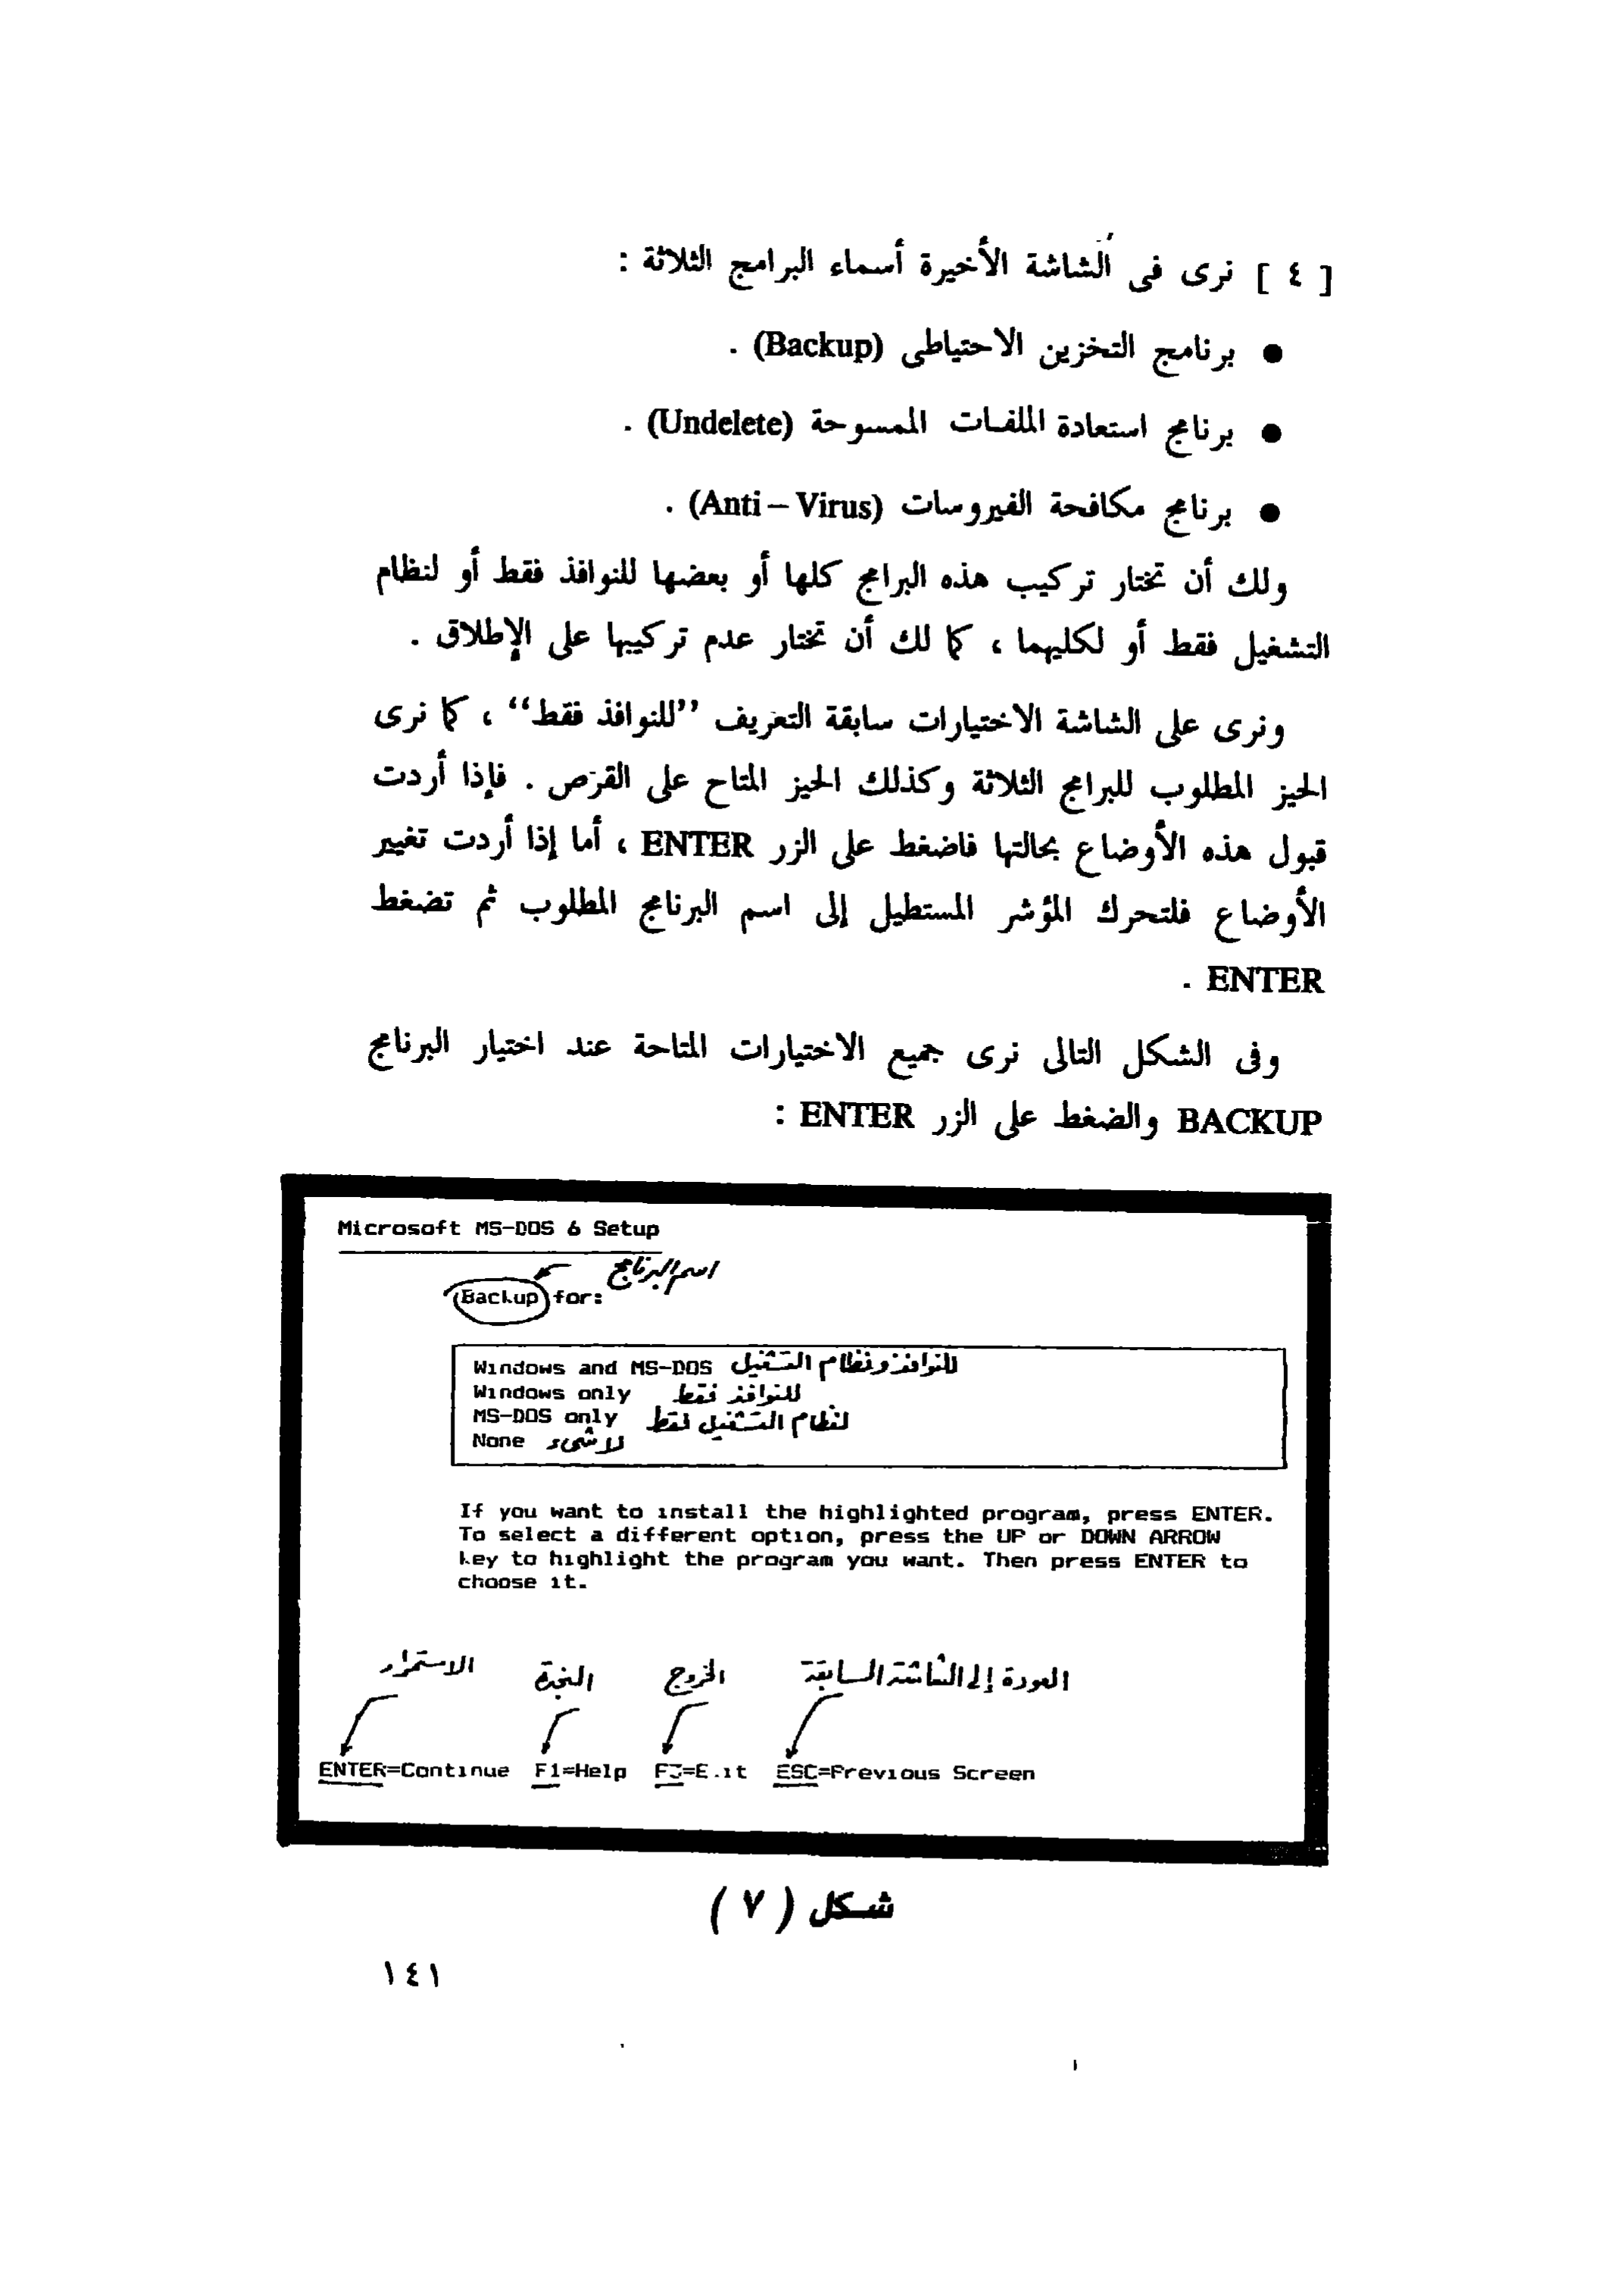 [ ٤ ] نرى فى الشاشة الأخيرة أسماء البرامج الثلاثة :
● برنامج التخزين الاحتياطى (Backup) .
● برنامج استعادة الملفات الممسوحة (Undelete) .
● برنامج مكافحة الفيروسات (Anti – Virus) .
ولك أن تختار تركيب هذه البرامج كلها أو بعضها للنوافذ فقط أو لنظام
التشغيل فقط أو لكليهما ، كما لك أن تختار عدم تركيبها على الإطلاق .
ونرى على الشاشة الاختيارات سابقة التعريف ”للنوافذ فقط“ ، كما نرى
الحيز المطلوب للبرامج الثلاثة وكذلك الحيز المتاح على القرص . فإذا أردت
قبول هذه الأوضاع بحالتها فاضغط على الزر ENTER ، أما إذا أردت تغيير
الأوضاع فلتحرك المؤشر المستطيل إلى اسم البرنامج المطلوب ثم تضغط
ENTER .
وفى الشكل التالى نرى جميع الاختيارات المتاحة عند اختيار البرنامج
BACKUP والضغط على الزر ENTER :
Microsoft MS-DOS 6 Setup
اسم البرنامج
Backup for:
Windows and MS-DOS للنوافذ ونظام التشغيل
Windows only للنوافذ فقط
MS-DOS only لنظام التشغيل فقط
None لا شىء
If you want to install the highlighted program, press ENTER.
To select a different option, press the UP or DOWN ARROW
key to highlight the program you want. Then press ENTER to
choose it.
الاستمرار النجدة الخروج العودة إلى الشاشة السابقة
ENTER=Continue F1=Help F3=Exit ESC=Previous Screen
شكل ( ٧ )
١٤١